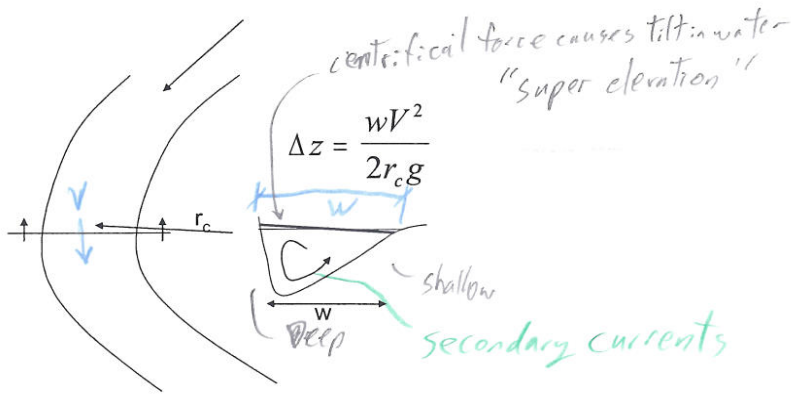 centrifical force causes tilt in water
"super elevation"
Δz = wV²/2r_c g
V
w
r_c
shallow
w
Deep
secondary currents